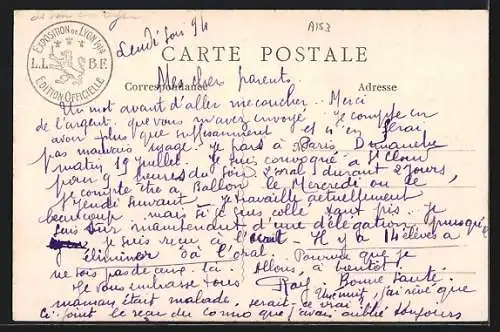 EXPOSITION DE LYON 1914
L.L. B.F.
EDITION OFFICIELLE
A153
Lundi soir 9h
CARTE POSTALE
Correspondance Adresse
Mes chers parents
Un mot avant d'aller me coucher. Merci
de l'argent que vous m'avez envoyé. Je compte en
avoir plus que suffisamment et n'en ferai
pas mauvais usage. Je pars à Paris Dimanche
matin 19 Juillet. Je suis convoqué à St Cloud
pour 9 heures du soir. Oral durant 2 jours,
je compte être à Ballon le Mercredi ou le
Jeudi suivant. Je travaille actuellement
beaucoup mais si je suis collé tant pis. Je
suis sûr maintenant d'une délégation puisque
je suis reçu à l'écrit - Il y a 14 élèves à
éliminer à l'oral. Pourvu que je
ne sois pas de ceux-là. Allons, à bientôt.
Je vous embrasse tous Bonne santé.
Ray
maman était malade, serait-ce vrai
j'ai rêvé que
Ci-joint le reçu du que j'avais oublié toujours